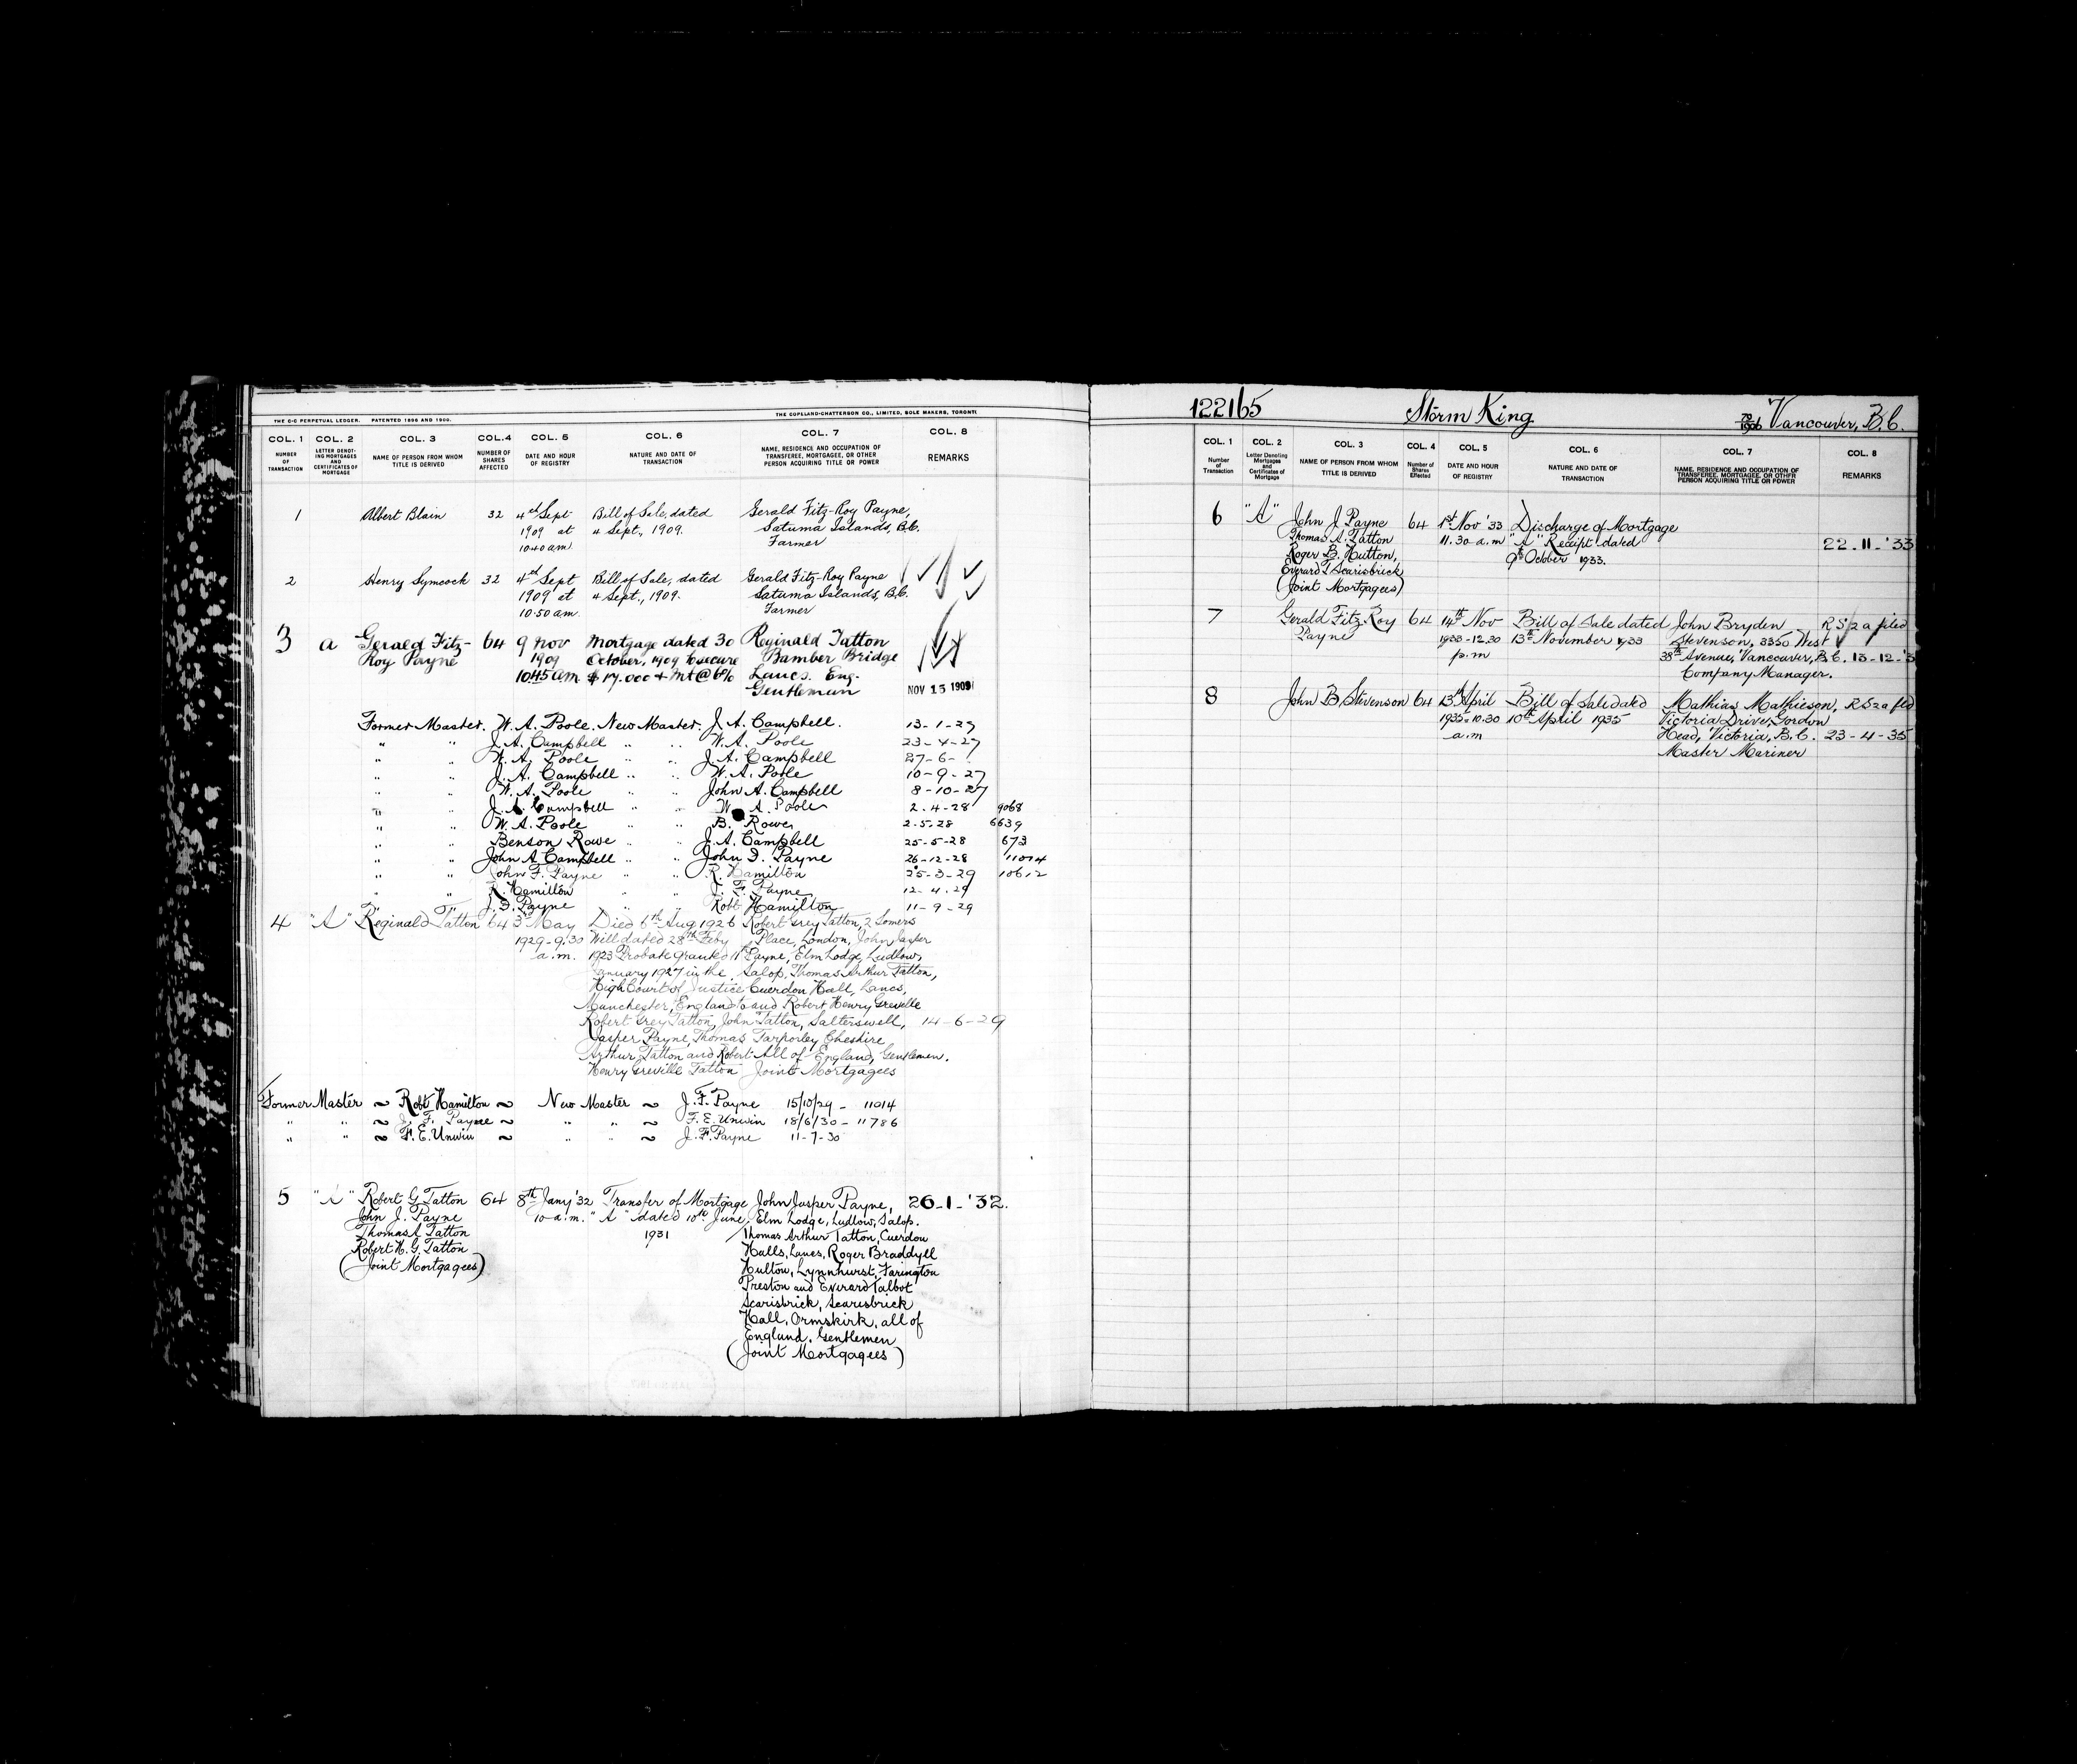 THE C-C PERPETUAL LEDGER. PATENTED 1896 AND 1900. THE COPELAND-CHATTERSON CO., LIMITED, SOLE MAKERS, TORONTO
COL. 1 COL. 2 COL. 3 COL. 4 COL. 5 COL. 6 COL. 7 COL. 8
NUMBER OF TRANSACTION
LETTER DENOTING MORTGAGES AND CERTIFICATES OF MORTGAGE
NAME OF PERSON FROM WHOM TITLE IS DERIVED
NUMBER OF SHARES AFFECTED
DATE AND HOUR OF REGISTRY
NATURE AND DATE OF TRANSACTION
NAME, RESIDENCE AND OCCUPATION OF TRANSFEREE, MORTGAGEE, OR OTHER PERSON ACQUIRING TITLE OR POWER
REMARKS
1 Albert Blain 32 4th Sept Bill of Sale, dated Gerald Fitz-Roy Payne,
1909 at 4 Sept., 1909. Satuma Islands, B.C.
10.40 am. Farmer
2 Henry Symcock 32 4th Sept Bill of Sale, dated Gerald Fitz-Roy Payne
1909 at 4 Sept., 1909. Satuma Islands, B.C.
10.50 am. Farmer
3 a Gerald Fitz- 64 9 Nov Mortgage dated 30 Reginald Tatton
Roy Payne 1909 October, 1909 to secure Bamber Bridge
10.45 am $17.000 + Int @ 6% Lancs. Eng.
Gentleman NOV 15 1909
Former Master. W. A. Poole. New Master. J. A. Campbell. 13-1-27
" " J. A. Campbell " " W. A. Poole 23-4-27
" " W. A. Poole " " J. A. Campbell 27-6-
" " J. A. Campbell " " W. A. Poole 10-9-27
" " W. A. Poole " " John A. Campbell 8-10-27
" " J. A. Campbell " " W. A. Poole 2.4-28 9068
" " W. A. Poole " " B. Rowe 2.5.28 6639
" " Benson Rowe " " J. A. Campbell 25-5-28 673
" " John A Campbell " " John D. Payne 26-12-28 11014
" " John F. Payne " " R. Hamilton 25-3-29 10612
" " R. Hamilton " " J. F. Payne 12-4-29
" " J. D. Payne " " Robt. Hamilton 11-9-29
4 "A" Reginald Tatton 64 3rd May Died 6th Aug 1926 Robert Grey Tatton, 2 Somers
1929-9.30 Will dated 28th Feby Place, London, John Jasper
a.m. 1923 Probate granted 11th Payne, Elm Lodge, Ludlow,
January 1927 in the Salop, Thomas Arthur Tatton,
High Court of Justice Cuerdon Hall, Lancs,
Manchester, England to and Robert Henry Greville
Robert Grey Tatton, John Tatton, Salterswell, 14-6-29
Jasper Payne, Thomas Tarporley Cheshire
Arthur Tatton and Robert All of England, Gentlemen.
Henry Greville Tatton Joint Mortgagees
Former Master ~ Robt Hamilton ~ New Master ~ J. F. Payne 15/10/29 - 11014
" " ~ J. F. Payne ~ " " ~ F. E. Unwin 18/6/30 - 11786
" " ~ F. E. Unwin ~ " " ~ J. F. Payne 11-7-30
5 "A" Robert G Tatton 64 8th Jany '32 Transfer of Mortgage John Jasper Payne, 26-1-'32.
John J. Payne 10 a.m. "A" dated 10th June, Elm Lodge, Ludlow, Salop.
Thomas A Tatton 1931 Thomas Arthur Tatton, Cuerdon
Robert H. G. Tatton Halls, Lancs, Roger Braddyll
(Joint Mortgagees) Hulton, Lynnhurst, Farington
Preston and Everard Talbot
Scarisbrick, Scarisbrick
Hall, Ormskirk, all of
England, Gentlemen
(Joint Mortgagees)
122165 Storm King Vancouver, B.C.
COL. 1 COL. 2 COL. 3 COL. 4 COL. 5 COL. 6 COL. 7 COL. 8
Number of Transaction
Letter Denoting Mortgages and Certificates of Mortgage
NAME OF PERSON FROM WHOM TITLE IS DERIVED
Number of Shares Effected
DATE AND HOUR OF REGISTRY
NATURE AND DATE OF TRANSACTION
NAME, RESIDENCE AND OCCUPATION OF TRANSFEREE, MORTGAGEE, OR OTHER PERSON ACQUIRING TITLE OR POWER
REMARKS
6 "A" John J Payne 64 1st Nov '33 Discharge of Mortgage
Thomas A. Tatton 11.30 a.m "A" Receipt dated 22.11.'33
Roger B. Hutton, 9th October 1933.
Everard T Scarisbrick
(Joint Mortgagees)
7 Gerald Fitz-Roy 64 14th Nov Bill of Sale dated John Bryden R S 2 a filed
Payne 1933-12.30 13th November 1933 Stevenson, 3350 West
p.m 38th Avenue, Vancouver, B.C. 13-12-'3
Company Manager.
8 John B. Stevenson 64 13th April Bill of Sale dated Mathias Mathieson, R S 2 a fld
1935-10.30 10th April 1935 Victoria Drive, Gordon
a.m Head, Victoria, B.C. 23-4-35
Master Mariner